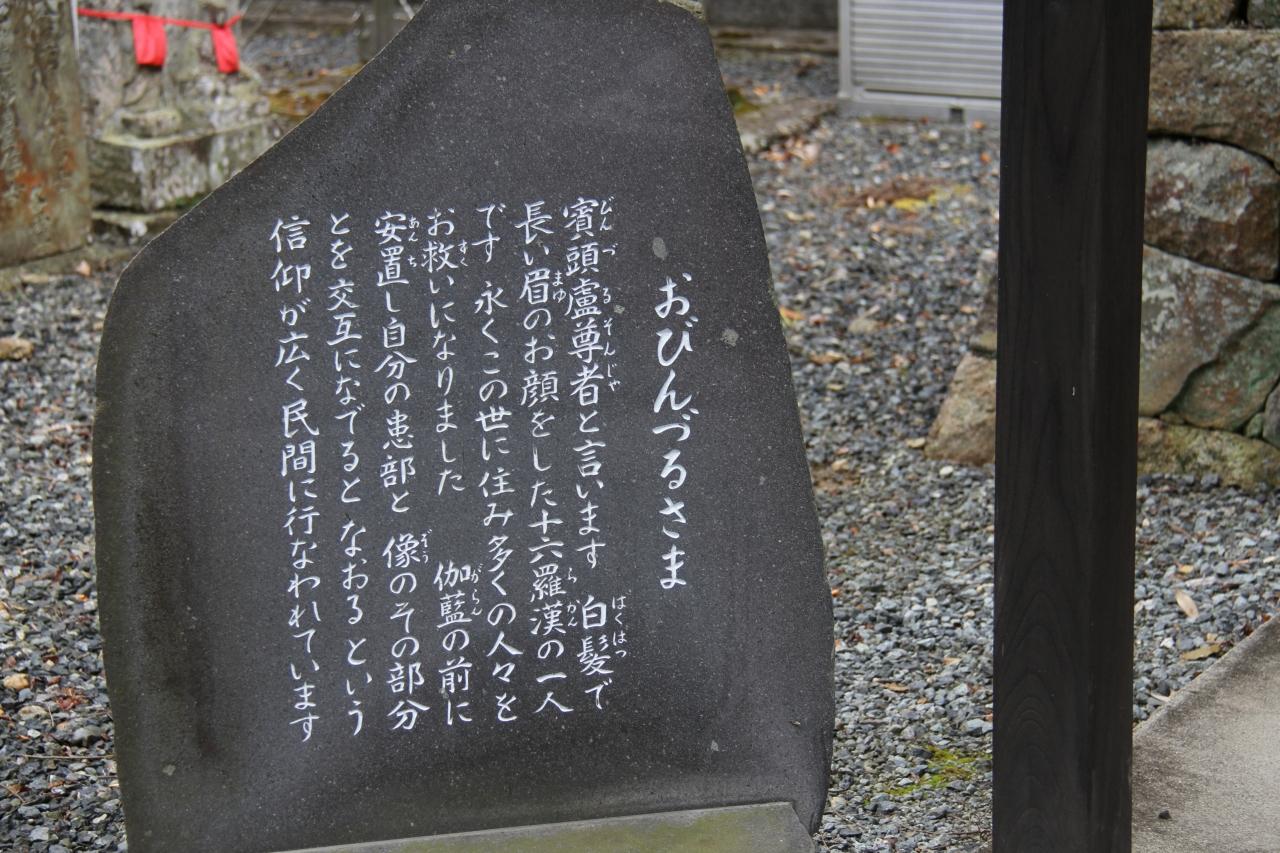 おびんづるさま
賓頭盧尊者と言います 白髪で
長い眉のお顔をした十六羅漢の一人
です 永くこの世に住み多くの人々を
お救いになりました 伽藍の前に
安置し自分の患部と 像のその部分
とを交互になでると なおるという
信仰が広く民間に行なわれています
びんづるそんじゃ
はくはつ
まゆ
らかん
すく
がらん
あんち
ぞう